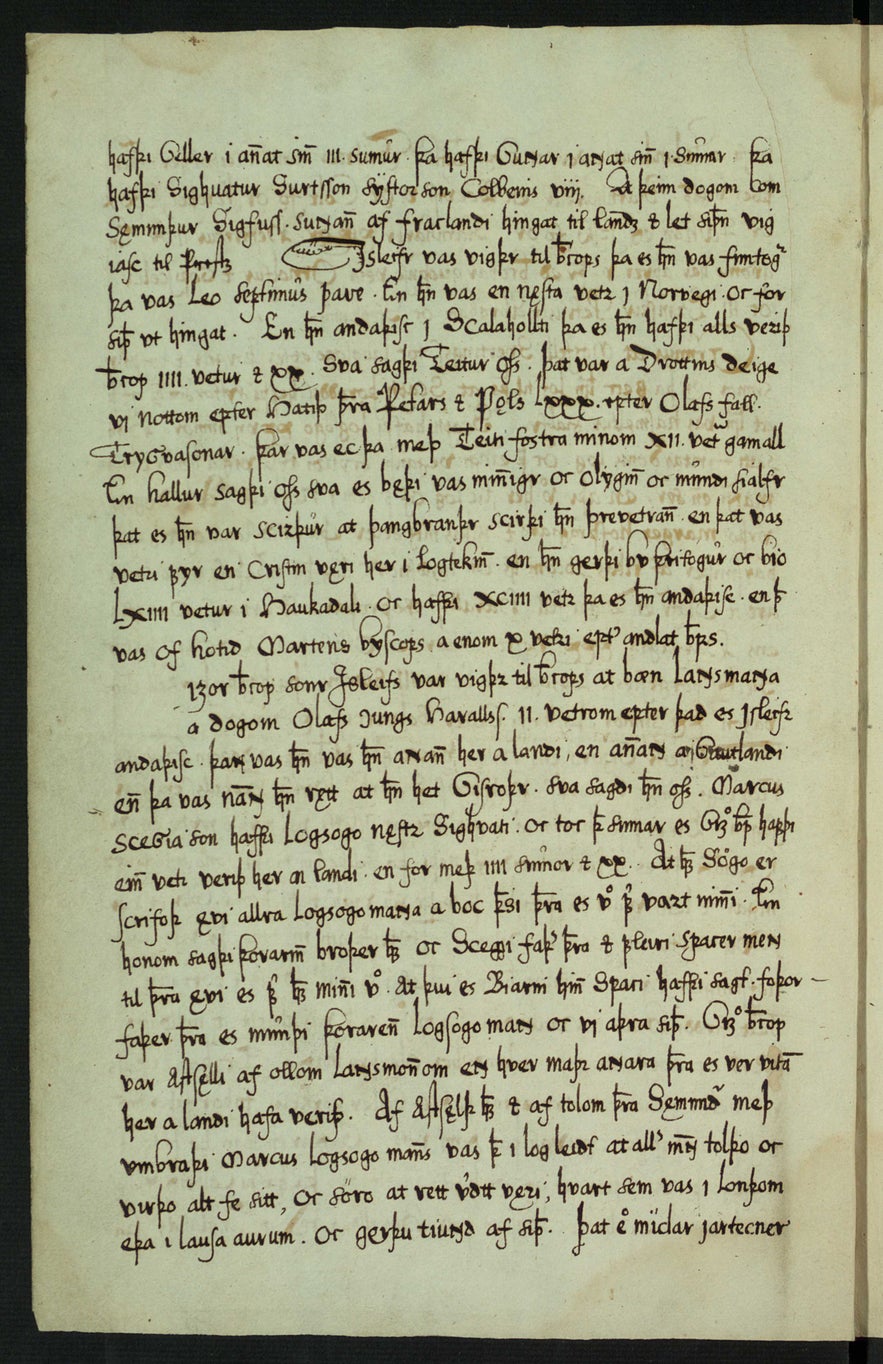 hafþi Geller i añat sin̄ III. sumur. þa hafþi Guɴar j aɴat sin̄ j. Sumar. þa
hafþi Sighvatur Surtsson systor son Colbeins viij. A þeim dogom com
Sęmunþur Sigfuss. suɴan̄ af fraclandi hingat til lanðz & let siþn̄ vig
iasc til Prestz Jsleifr vas vigþr til b̄cops þa es h̄n vas fimtøgr
þa vas Leo septimus pave. En h̄n vas en nęsta vetr j Norvegi. oc for
siþ̄ ut hingat. En h̄n andaþisc j Scalahollti þa es h̄n hafþi alls veriþ
b̄cop IIII. vetur & xx. Sva sagþi Teitur oss. þat var a Drottins deige
vi nottom epter Hatiþ þr̄a Petars & Pęls Lxxx. epter Olafs fall.
Trygvasonar. þar vas ec þa meþ Teiti fostra minom XII. vetra gamall
En hallur sagþi oss sva es bęþi vas min̄igr oc olygin̄ oc mundi sialfr
þat es h̄n var scirþur at þangbranþr scirþi h̄n þrevetran̄. en þat vas
vetri fyr en Cristin vęri her i logtekin̄. en h̄n gerþi bv þritogur oc bio
LXIIII vetur i Haukadali. oc hafþi XCIIII vetr þa es h̄n andaþisc. en þ̄
vas of hotid Martens byscops a enom x vetri epter andlat b̄ps.
izor b̄cop sonr Jsleifs var vigþr til b̄cops at bæn Lanɴsmaɴa
a dogom Olafs Jungs Harallss. II. vetrom epter þad es jsleifr
andaþisc. þaɴ vas h̄n vas h̄n aɴan̄ her a landi, en an̄aɴ a Gautlandi
en̄ þa vas nafn h̄n rętt at h̄n het Gisroþr. sva sagdi h̄n oss. Marcus
Scegia son hafþi Logsogo nęstr Sighvati. oc toc þ̄ sumar es Gizor b̄p hafþi
ein̄ vetr veriþ her an landi. en for meþ IIII sumor & xx. At h̄z Sögo er
scrifoþ ęvi allra Logsogo maɴa a boc þ̄si þr̄a es voro f̄ vart min̄i. En
honom sagþi þorarin̄ broþer h̄z oc Sceggi faþer þr̄a & fleiri spacer meɴ
til þr̄a ęvi es f̄ h̄z min̄i voro. At þui es Biarni hin̄ Spaci hafþi sagt. foþor
faþer þr̄a es munþi þoraren̄ Logsogo maɴ oc vj aþra siþ̄. Gizor b̄cop
var Astsęlli af ollom Lanɴsmon̄om eɴ hver maþr aɴara þr̄a es ver vitū
her a landi hafa veriþ. Af Astsęlþ h̄z & af tolom þr̄a Sęmundar meþ
umbraþi Marcus Logsogo man̄s vas þ̄ i log leidt at aller men̄ tolþo oc
virþo alt fe sitt, oc soro at rett vırdtt vęri, hvart sem vas j lonþom
eþa i lausa aurum. oc gerþu tiuɴd af siþ̄. þat ero miclar jartecner